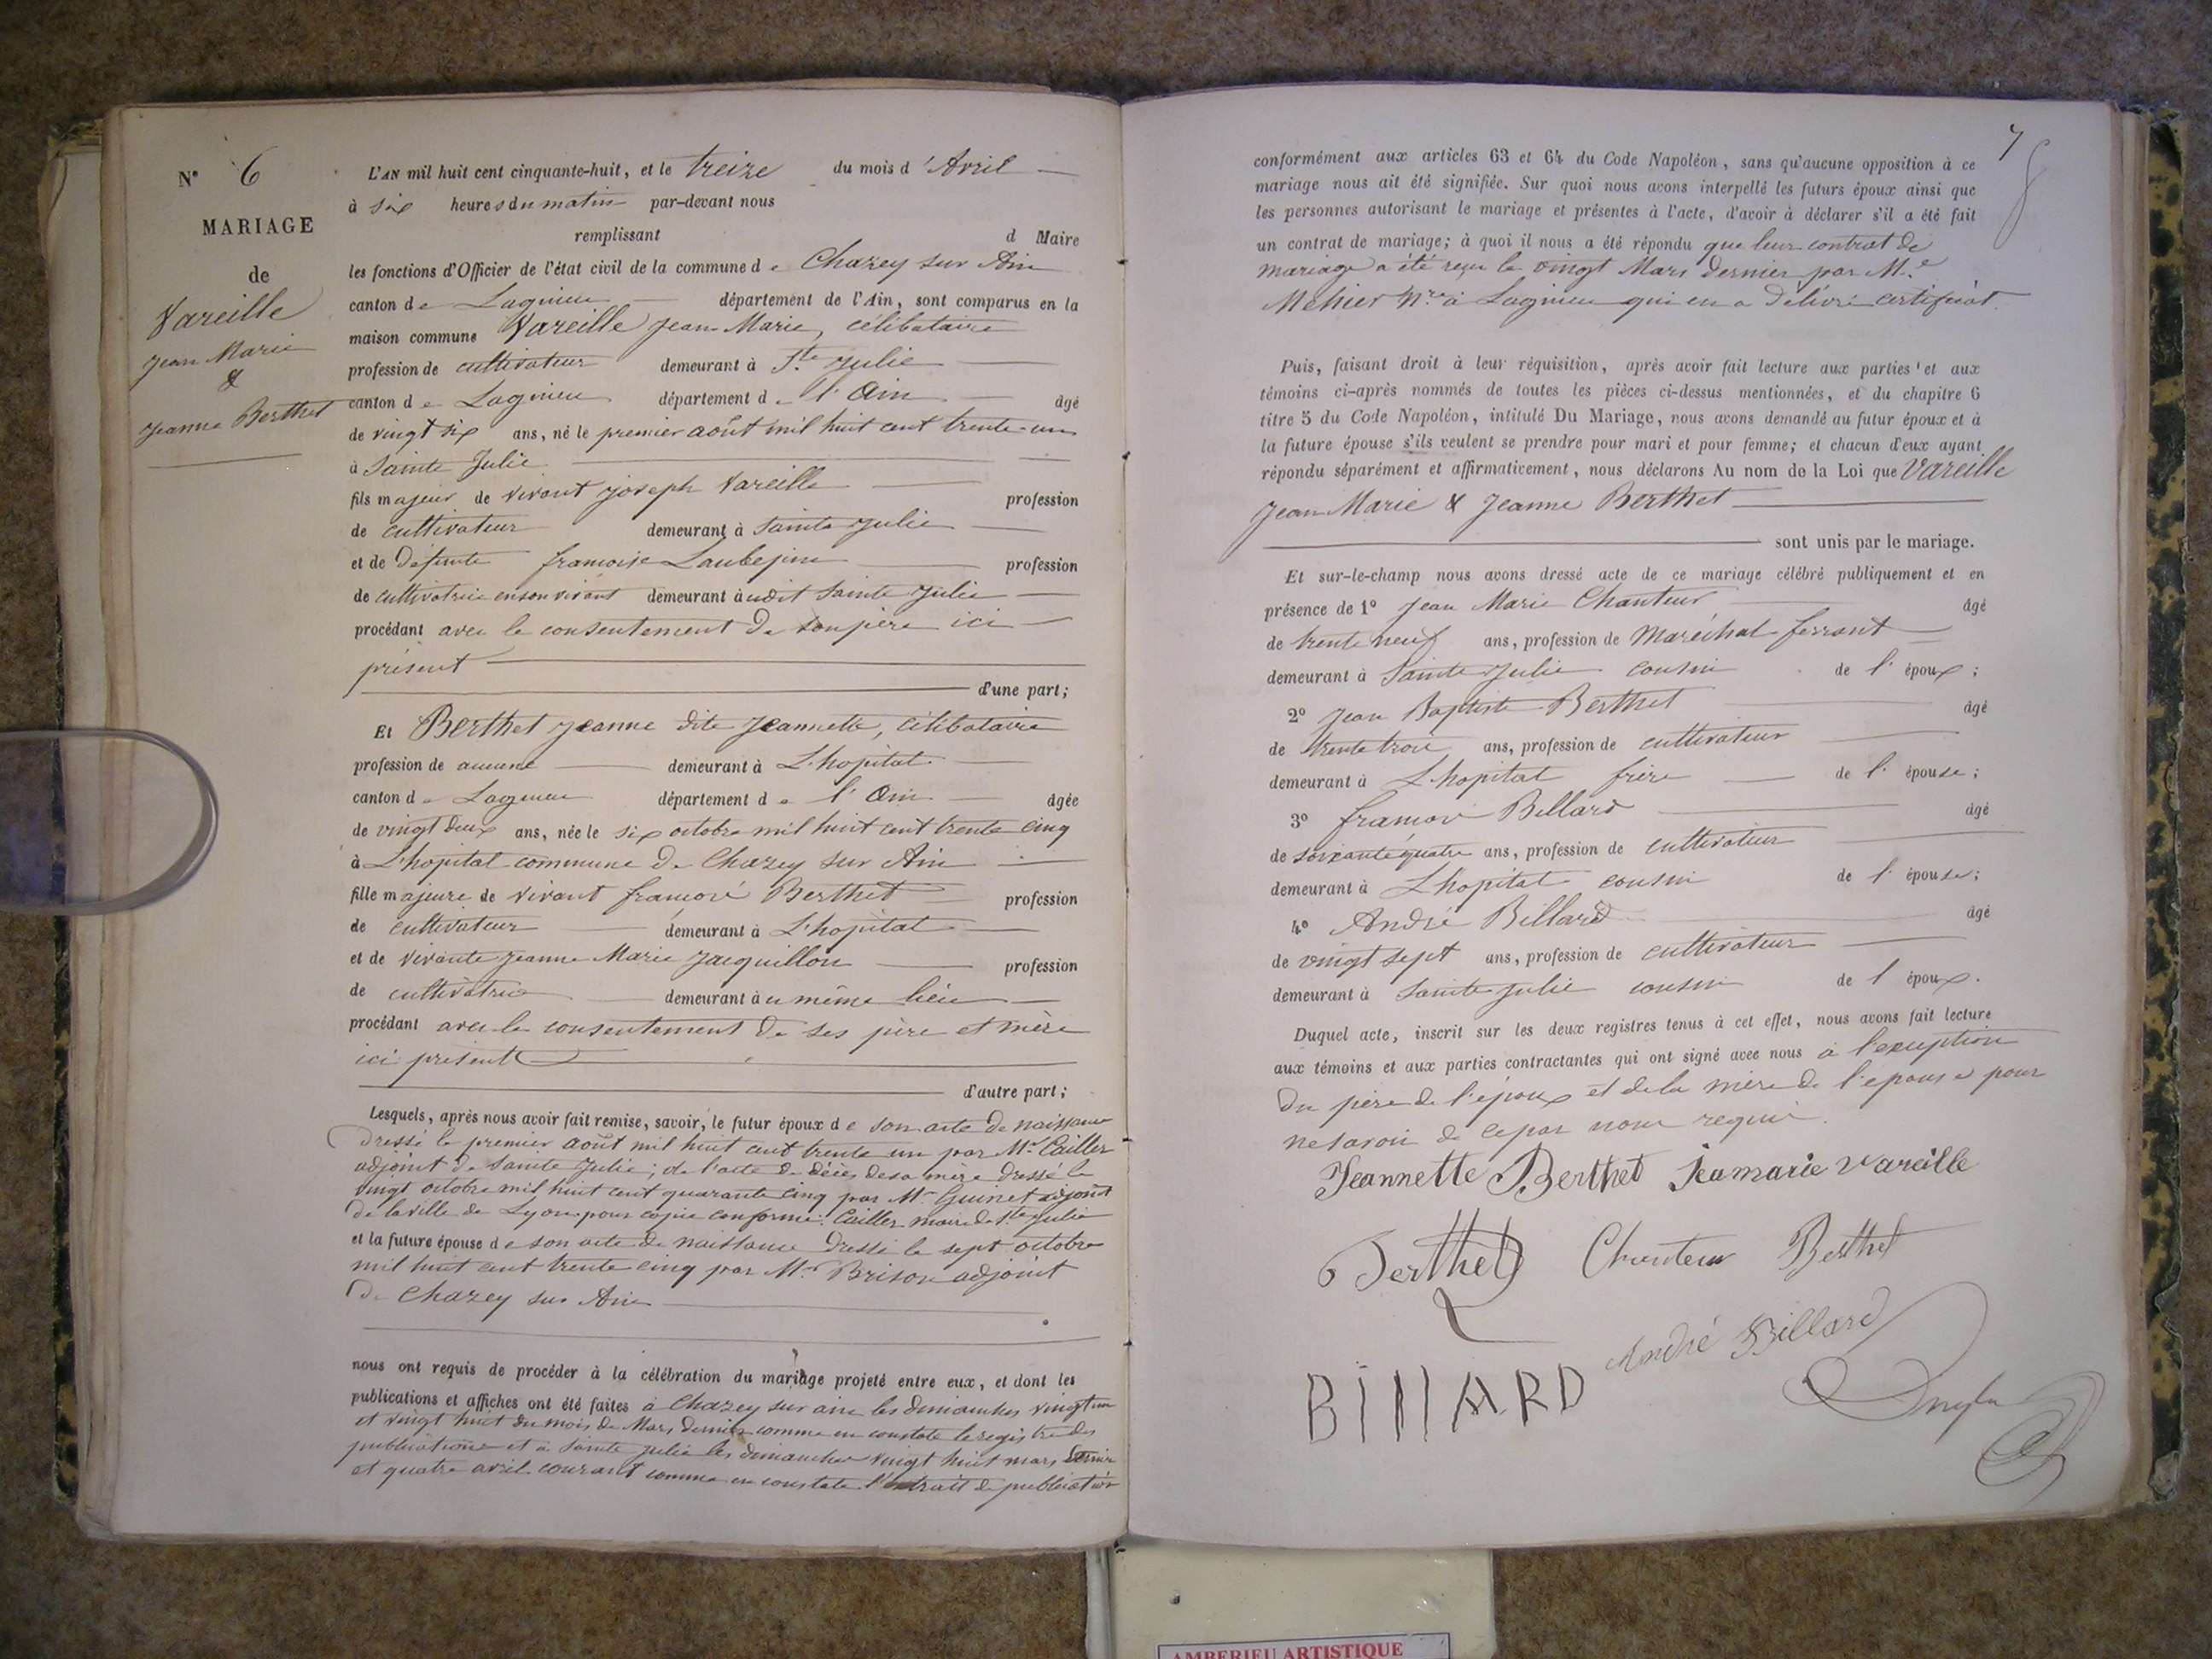 N° 6
MARIAGE
de
Vareille
Jean Marie
&
Jeanne Berthet
L'AN mil huit cent cinquante-huit, et le treize du mois d'Avril
à six heures du matin par-devant nous
remplissant d Maire
les fonctions d'Officier de l'état civil de la commune de Chazey sur Ain
canton de Lagnieu département de l'Ain, sont comparus en la
maison commune Vareille Jean Marie, célibataire
profession de cultivateur demeurant à Ste Julie
canton de Lagnieu département de l'Ain âgé
de vingt six ans, né le premier août mil huit cent trente-un
à Sainte Julie
fils majeur de vivant Joseph Vareille profession
de cultivateur demeurant à Sainte Julie
et de défunte francoise Laubepin profession
de cultivatrice en son vivant demeurant audit Sainte Julie
procédant avec le consentement de son père ici
présent
d'une part;
Et Berthet Jeanne dite Jeannette, célibataire
profession de aucune demeurant à L'hopital
canton de Lagnieu département de l'Ain âgée
de vingt deux ans, née le six octobre mil huit cent trente cinq
à L'hopital commune de Chazey sur Ain
fille majeure de vivant francois Berthet profession
de cultivateur demeurant à L'hopital
et de vivante Jeanne Marie Jacquillon profession
de cultivatrice demeurant au même lieu
procédant avec le consentement de ses père et mère
ici présent
d'autre part;
Lesquels, après nous avoir fait remise, savoir, le futur époux de son acte de naissance
dressé le premier août mil huit cent trente un par Mr Cailler
adjoint de Sainte Julie; de l'acte de décès de sa mère dressé le
vingt octobre mil huit cent quarante cinq par Mr Guinet adjoint
de la ville de Lyon pour copie conforme. Cailler maire de Ste Julie
et la future épouse de son acte de naissance dressé le sept octobre
mil huit cent trente cinq par Mr Brison adjoint
de Chazey sur Ain
nous ont requis de procéder à la célébration du mariage projeté entre eux, et dont les
publications et affiches ont été faites à Chazey sur ain les dimanches vingt un
et vingt huit du mois de Mars dernier comme en constate le registre des
publications et à Sainte Julie les dimanches vingt huit mars dernier
et quatre avril courant comme en constate l'extrait de publication
7
conformément aux articles 63 et 64 du Code Napoléon, sans qu'aucune opposition à ce
mariage nous ait été signifiée. Sur quoi nous avons interpellé les futurs époux ainsi que
les personnes autorisant le mariage et présentes à l'acte, d'avoir à déclarer s'il a été fait
un contrat de mariage; à quoi il nous a été répondu que leur contrat de
mariage a été reçu le vingt Mars dernier par Me
Mehier Nre à Lagnieu qui en a délivré certificat.
Puis, faisant droit à leur réquisition, après avoir fait lecture aux parties et aux
témoins ci-après nommés de toutes les pièces ci-dessus mentionnées, et du chapitre 6
titre 5 du Code Napoléon, intitulé Du Mariage, nous avons demandé au futur époux et à
la future épouse s'ils veulent se prendre pour mari et pour femme; et chacun d'eux ayant
répondu séparément et affirmativement, nous déclarons Au nom de la Loi que Vareille
Jean Marie & Jeanne Berthet
sont unis par le mariage.
Et sur-le-champ nous avons dressé acte de ce mariage célébré publiquement et en
présence de 1° Jean Marie Chanteur âgé
de trente neuf ans, profession de Maréchal ferrant
demeurant à Sainte Julie cousin de l'époux;
2° Jean Baptiste Berthet âgé
de trente trois ans, profession de cultivateur
demeurant à L'hopital frère de l'épouse;
3° francois Billard âgé
de soixante quatre ans, profession de cultivateur
demeurant à L'hopital cousin de l'épouse;
4° André Billard âgé
de vingt sept ans, profession de cultivateur
demeurant à Sainte Julie cousin de l'époux.
Duquel acte, inscrit sur les deux registres tenus à cet effet, nous avons fait lecture
aux témoins et aux parties contractantes qui ont signé avec nous à l'exception
du père de l'époux et de la mère de l'épouse pour
ne savoir de ce par nous requis.
Jeannette Berthet Jeamarie vareille
Berthet Chanteur Berthet
André Billard
BillARD
AMBERIEU ARTISTIQUE